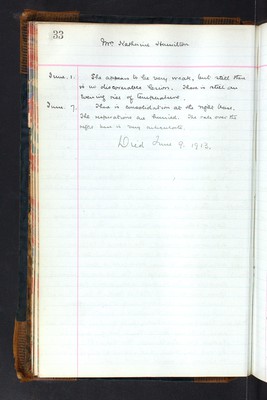 33
Mrs Katharine Hamilton
June. 1. She appears to be very weak, but still there
is no discoverable lesion. There is still an
evening rise of temperature.
June. 7. There is consolidation at the right base.
The respirations are hurried. The rales over the
right base is very
Died June 9. 1913.